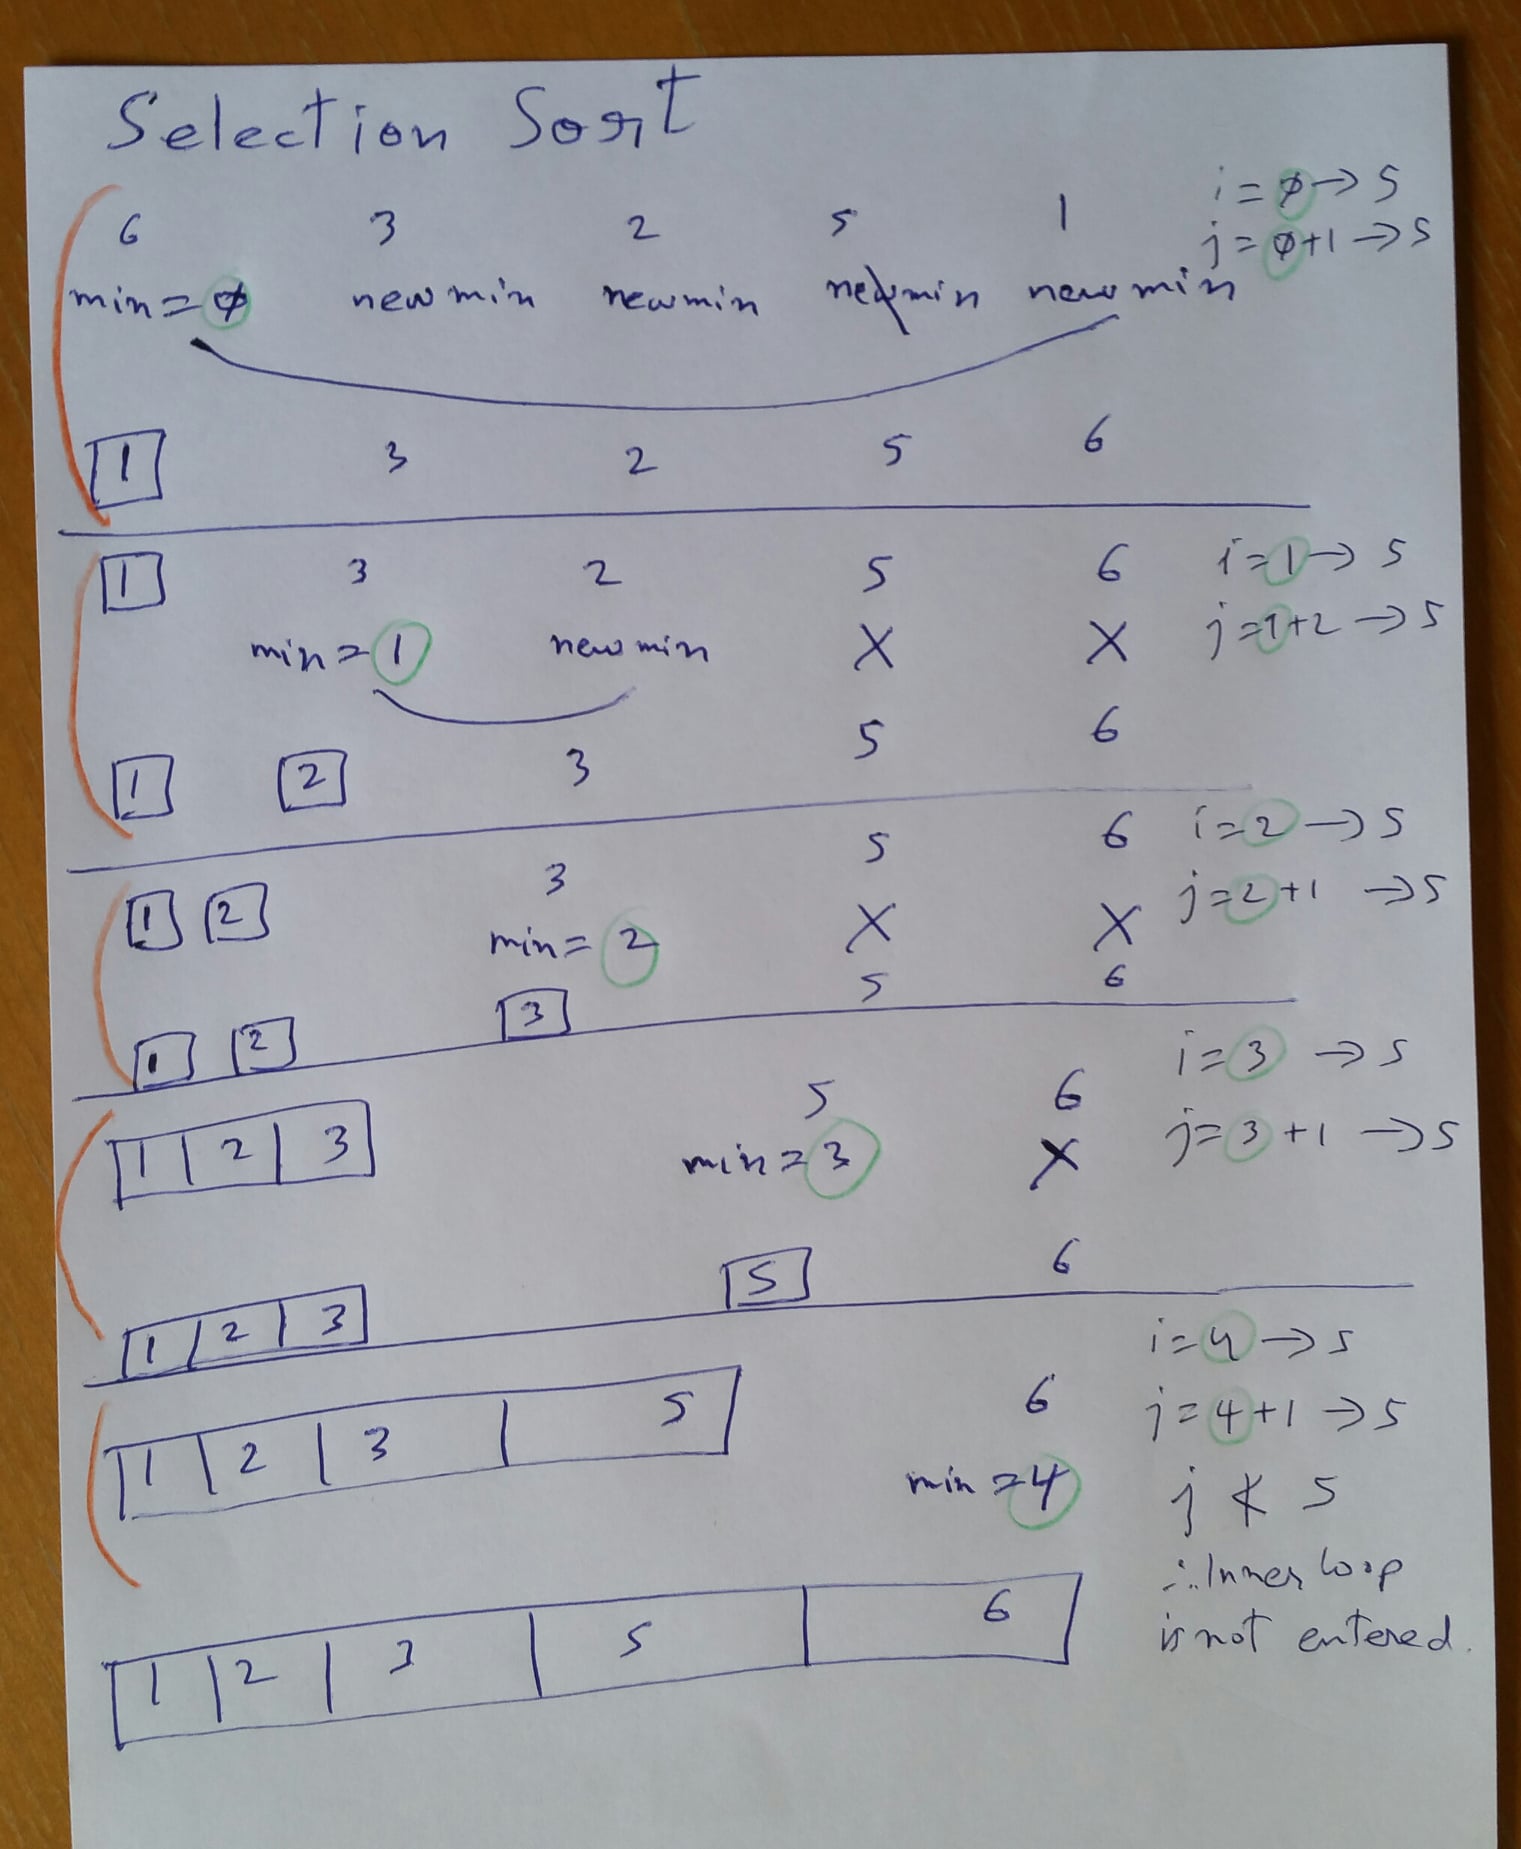 Selection Sort
6 3 2 5 1 i = 0 → 5
j = 0+1 → 5
min = 0 new min new min new min new min
1 3 2 5 6
1 3 2 5 6 i = 1 → 5
min = 1 new min X X j = 1+2 → 5
1 2 3 5 6
1 2 3 5 6 i = 2 → 5
min = 2 X X j = 2+1 → 5
1 2 3 5 6
i = 3 → 5
1 2 3 5 6
min = 3 X j = 3+1 → 5
1 2 3 5 6
i = 4 → 5
1 2 3 5 6 j = 4+1 → 5
min = 4 j ≮ 5
∴ Inner loop
is not entered.
1 2 3 5 6